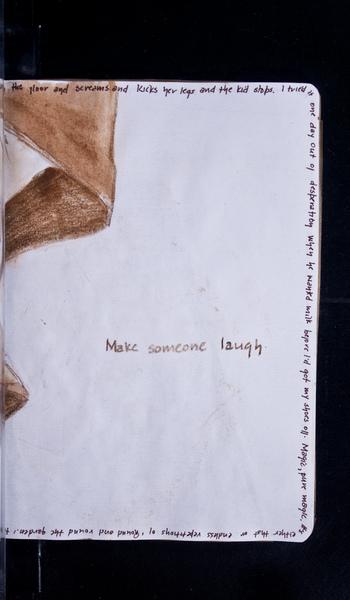 the floor and screams and kicks her legs and the kid stops. I tried it
one day out of desperation when he wanted milk before I'd got my shoes off. Magic, pure magic. It's
either that or endless repetitions of 'Round and round the garden'.
Make someone laugh